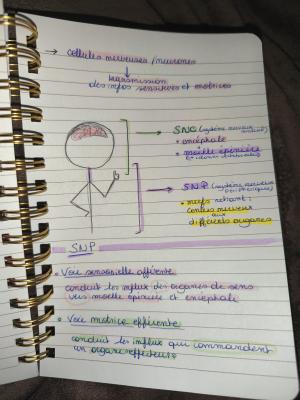 → cellules nerveuses / neurones
↓ transmission
des infos sensitives et motrices
→ SNC (système nerveux central)
• encéphale
+
• moelle épinière
→ SNP (système nerveux périphérique)
• nerfs reliant :
centres nerveux
aux
différents organes
SNP
• Voie sensorielle afférente
conduit les influx des organes de sens
vers moelle épinière et encéphale
• Voie motrice efférente
conduit les influx qui commandent
un organe effecteur